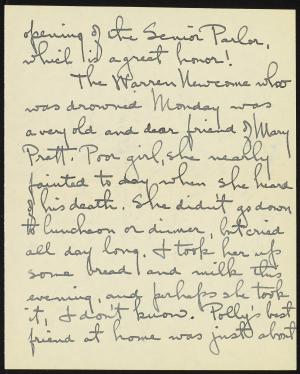 opening of the Senior Parlor,
which is a great honor!
The Warren Newcome who
was drowned Monday was
a very old and dear friend of Mary
Pratt. Poor girl, she nearly
fainted to day when she heard
his death. She didn't go down
to luncheon or dinner, but cried
all day long. I took her up
some bread and milk this
evening, and perhaps she took
it, I don't know. Polly's best
friend at home was just about